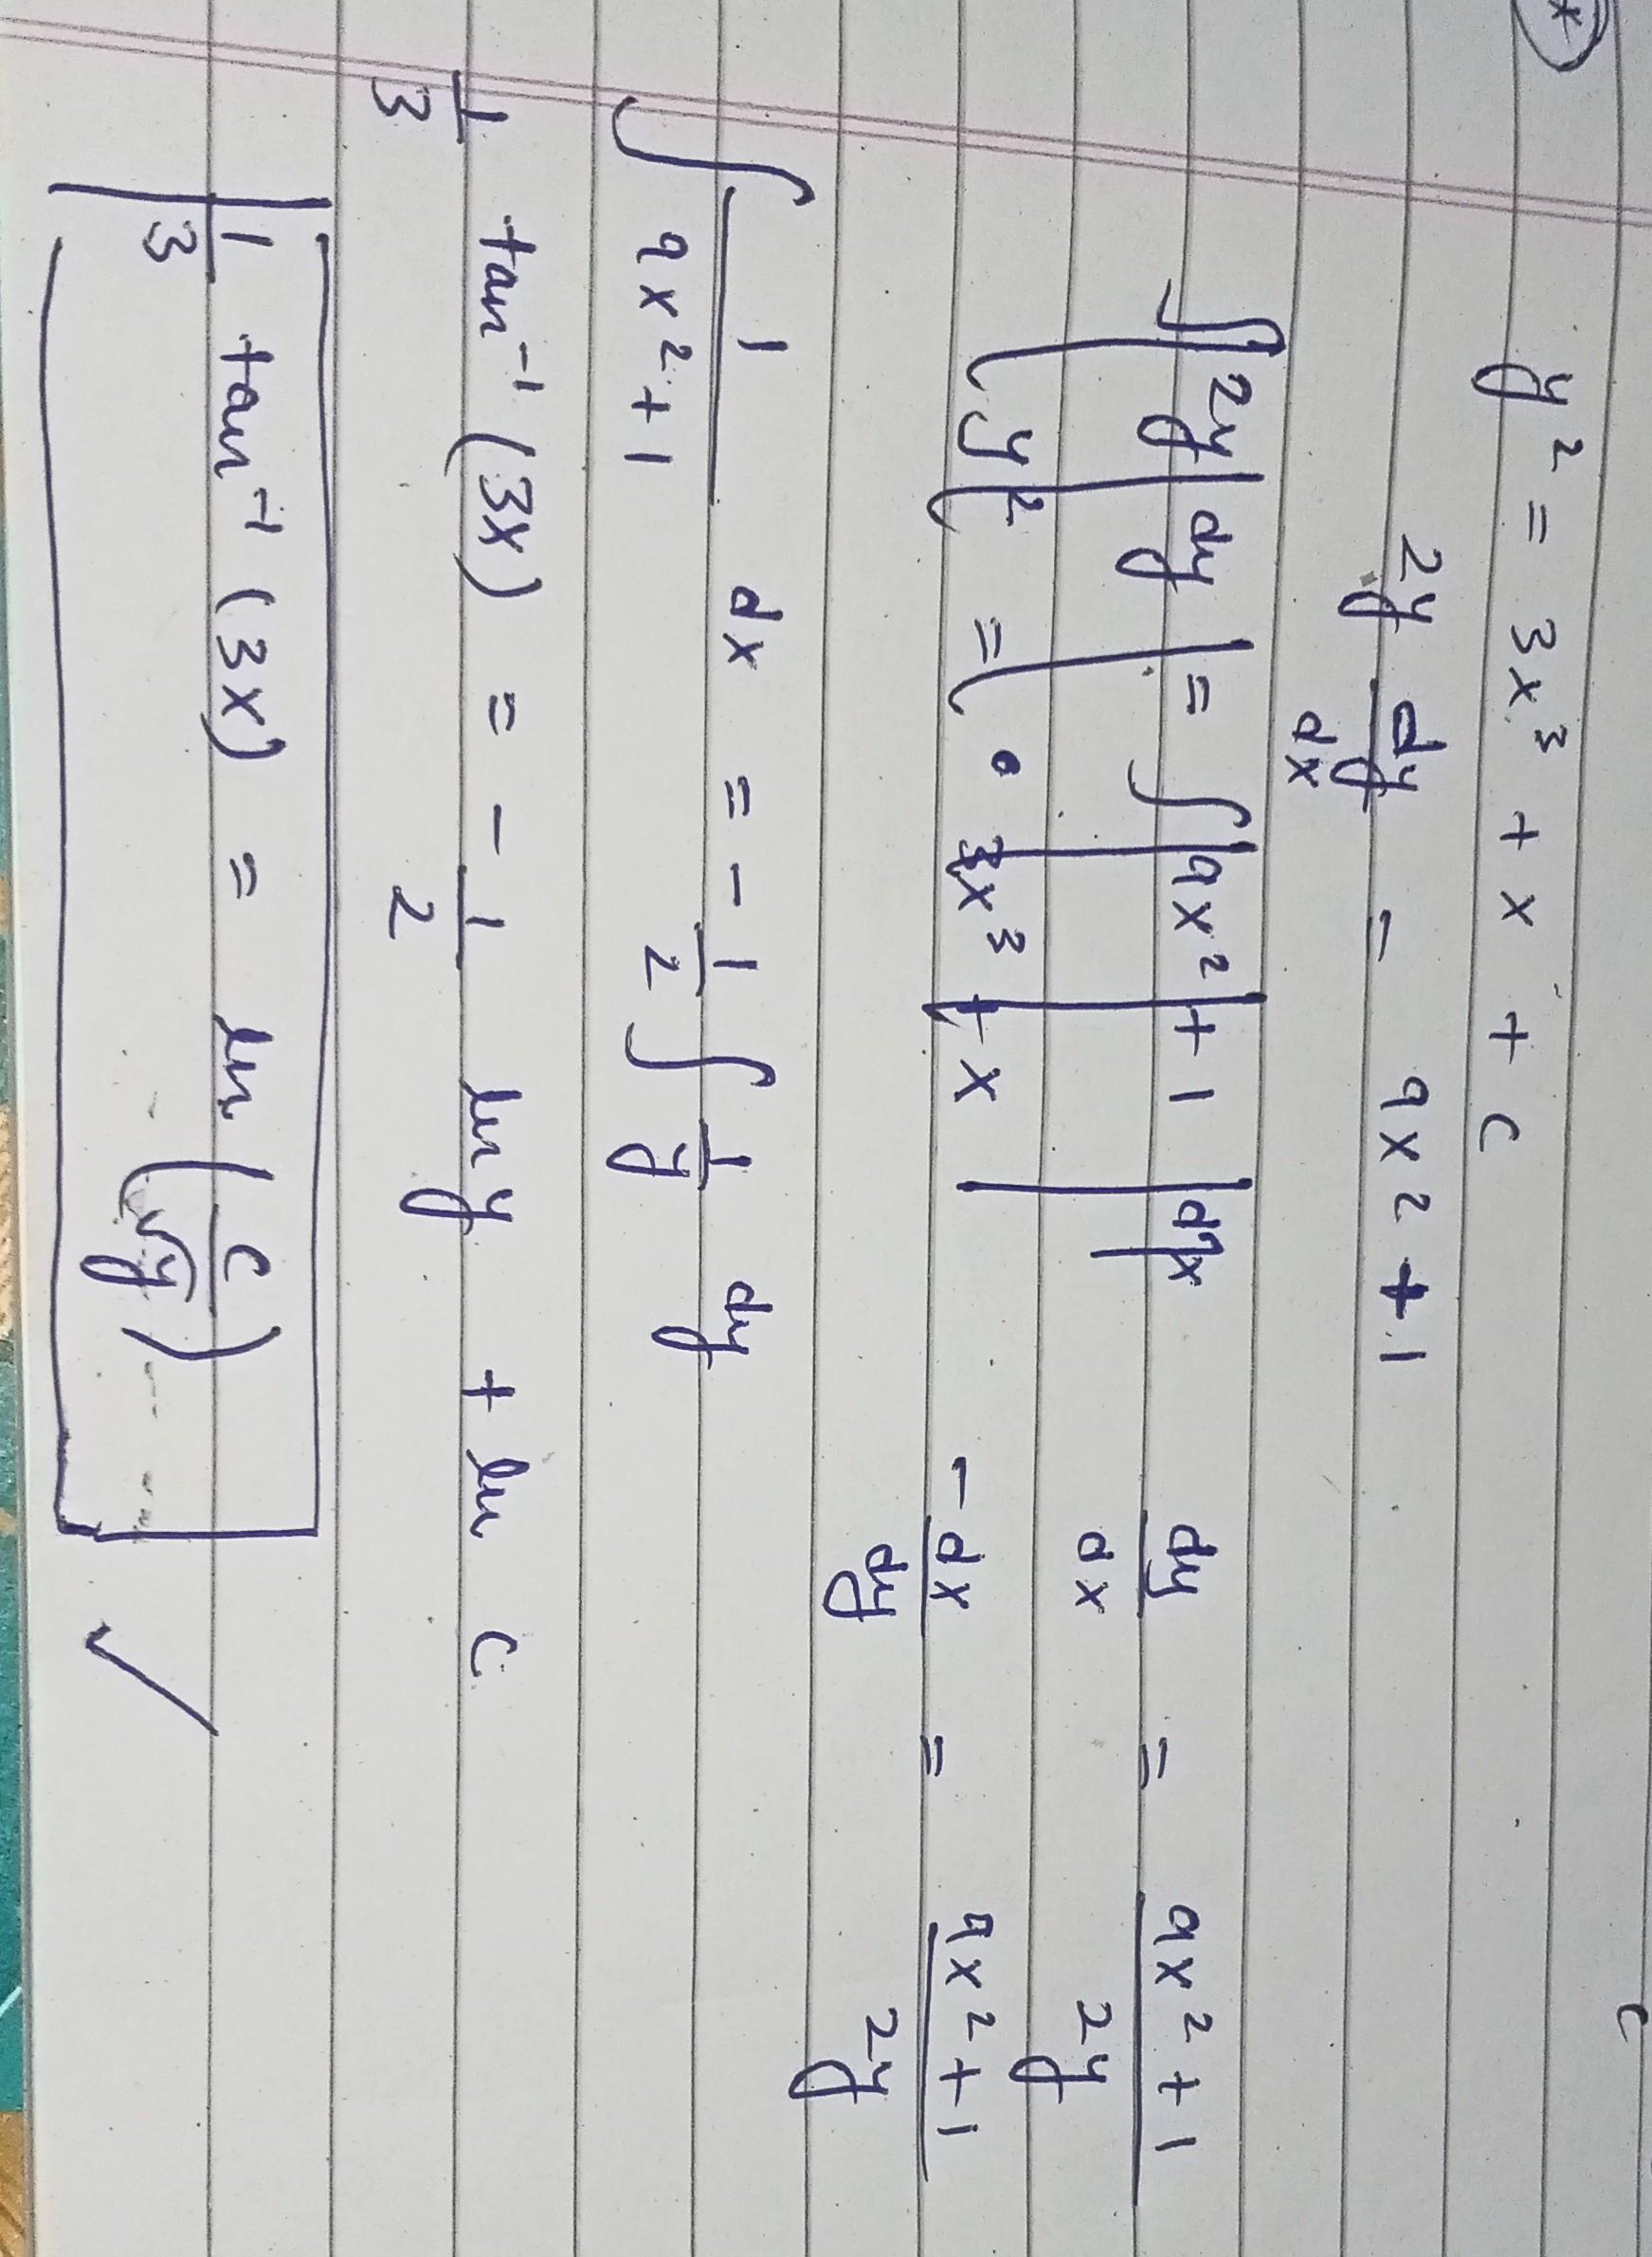 *
c
y² = 3x³ + x + c
2y dy/dx = 9x² + 1
∫ 2y dy = ∫ 9x² + 1 dx
y² = 3x³ + x
dy/dx = (9x² + 1)/2y
-dx/dy = (9x² + 1)/2y
∫ 1/(9x² + 1) dx = - 1/2 ∫ 1/y dy
1/3 tan⁻¹ (3x) = - 1/2 ln y + ln c
1/3 tan⁻¹ (3x) = ln (c/√y)